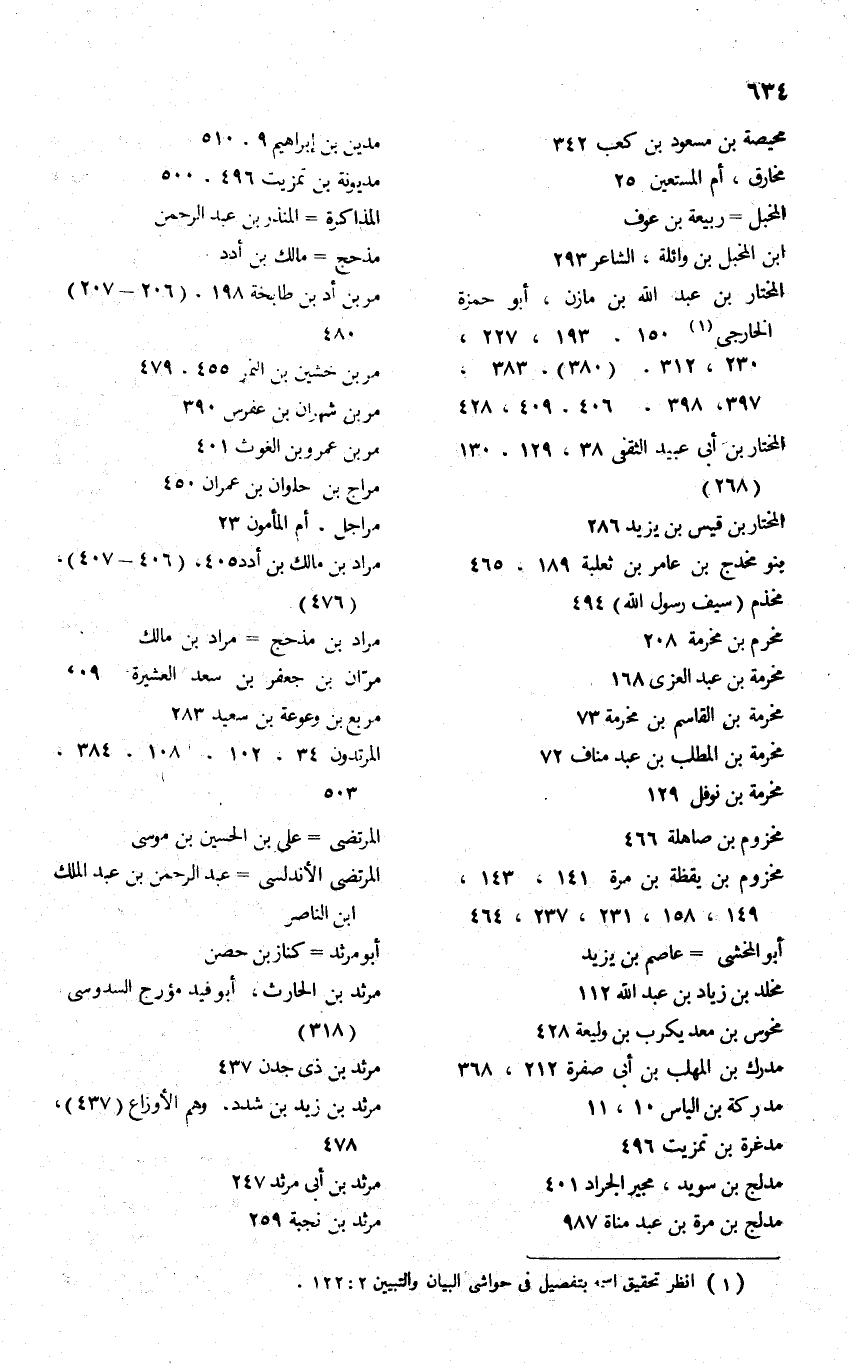 ٦٣٤
محيصة بن مسعود بن كعب ٣٤٢
مخارق ، أم المستعين ٢٥
المخبل = ربيعة بن عوف
ابن المخبل بن واثلة ، الشاعر ٢٩٣
المختار بن عبد الله بن مازن ، أبو حمزة
الخارجى (١) ١٥٠ . ١٩٣ ، ٢٢٧ ،
٢٣٠ ، ٣١٢ . (٣٨٠) . ٣٨٣ ،
٣٩٧، ٣٩٨ . ٤٠٦ . ٤٠٩ ، ٤٢٨
المختار بن أبى عبيد الثقفى ٣٨ ، ١٢٩ . ١٣٠
(٢٦٨)
المختار بن قيس بن يزيد ٢٨٦
بنو مخدج بن عامر بن ثعلبة ١٨٩ ، ٤٦٥
مخذم (سيف رسول الله) ٤٩٤
مخرم بن مخرمة ٢٠٨
مخرمة بن عبد العزى ١٦٨
مخرمة بن القاسم بن مخرمة ٧٣
مخرمة بن المطلب بن عبد مناف ٧٢
مخرمة بن نوفل ١٢٩
مخزوم بن صاهلة ٤٦٦
مخزوم بن يقظة بن مرة ١٤١ ، ١٤٣ ،
١٤٩ ، ١٥٨ ، ٢٣١ ، ٢٣٧ ، ٤٦٤
أبو المخشى = عاصم بن يزيد
مخلد بن زياد بن عبد الله ١١٢
مخوس بن معد يكرب بن وليعة ٤٢٨
مدرك بن المهلب بن أبى صفرة ٢١٢ ، ٣٦٨
مدركة بن الياس ١٠ ، ١١
مدغرة بن تمزيت ٤٩٦
مدلج بن سويد ، مجير الجراد ٤٠١
مدلج بن مرة بن عبد مناة ٩٨٧
مدين بن إبراهيم ٩ . ٥١٠
مديونة بن تمزيت ٤٩٦ . ٥٠٠
المذاكرة = المنذر بن عبد الرحمن
مذحج = مالك بن أدد
مر بن أد بن طابخة ١٩٨ . (٢٠٦ – ٢٠٧)
٤٨٠
مر بن خشين بن النمر ٤٥٥ . ٤٧٩
مر بن شهران بن عفرس ٣٩٠
مر بن عمرو بن الغوث ٤٠١
مراج بن حلوان بن عمران ٤٥٠
مراجل . أم المأمون ٢٣
مراد بن مالك بن أدد ٤٠٥، (٤٠٦ – ٤٠٧)،
(٤٧٦)
مراد بن مذحج = مراد بن مالك
مرّان بن جعفر بن سعد العشيرة
مربع بن وعوعة بن سعيد ٢٨٣
المرتدون ٣٤ . ١٠٢ . ١٠٨ . ٣٨٤ .
٥٠٣
المرتضى = على بن الحسين بن موسى
المرتضى الأندلسى = عبد الرحمن بن عبد الملك
ابن الناصر
أبو مرثد = كناز بن حصن
مرثد بن الحارث ، أبو فيد مؤرج السدوسى
(٣١٨)
مرثد بن ذى جدن ٤٣٧
مرثد بن زيد بن شدد. وهم الأوزاع (٤٣٧)،
٤٧٨
مرثد بن أبى مرثد ٢٤٧
مرثد بن نجبة ٢٥٩
(١) انظر تحقيق اسمه بتفصيل فى حواشى البيان والتبيين ٢ : ١٢٢ .